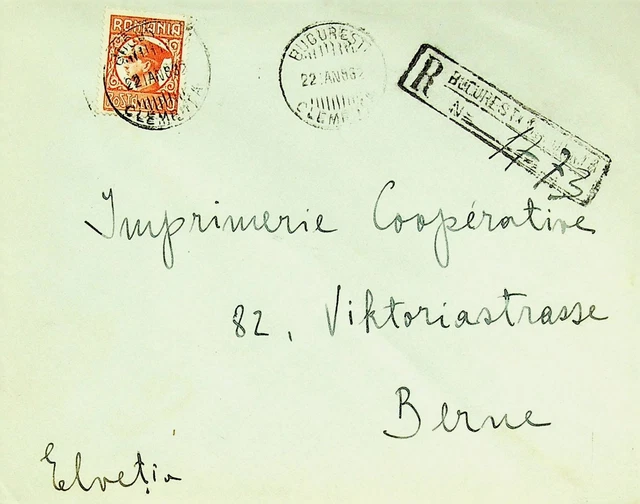 ROMANIA
POSTA
BUCUREȘTI
22 IAN 
CLEMENȚA
BUCUREȘTI
22 IAN
CLEMENȚA
R BUCUREȘTI
No 1173
Imprimerie Coopérative
82, Viktoriastrasse
Berne
Elveția